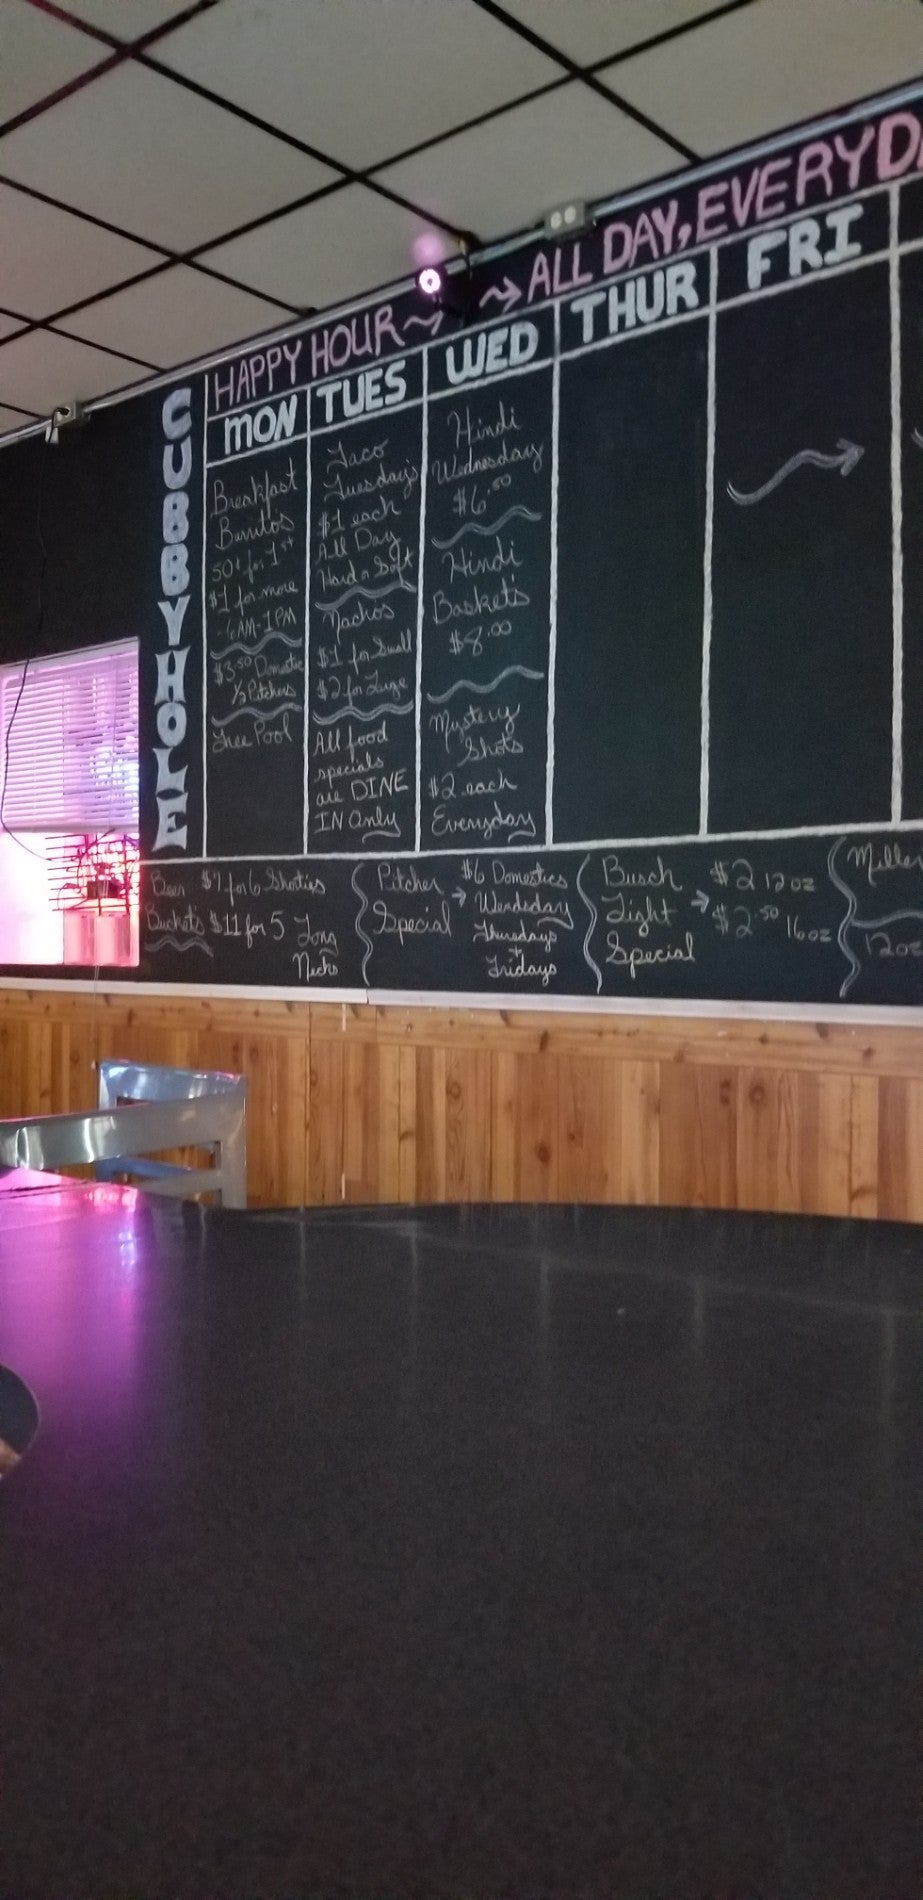 HAPPY HOUR ALL DAY, EVERYDA
CUBBYHOLE
MON
Breakfast
Burritos
50¢ for 1st
$1 for more
-6AM-1PM
$3.50 Domestic
1/2 Pitchers
Free Pool
TUES
Taco
Tuesday's
$1 each
All Day
Hard or Soft
Nachos
$1 for Small
$2 for Large
All food
specials
are DINE
IN Only
WED
Hindi
Wednesday
$6.50
Hindi
Basket's
$8.00
Mystery
Shots
$2 each
Everyday
THUR
FRI
Beer $7 for 6 Shorties
Buckets $11 for 5 Long
Necks
Pitcher
Special
$6 Domestics
Wendsday
Thursdays
+
Fridays
Busch
Light
Special
$2 12oz
$2.50 16oz
Miller
12oz